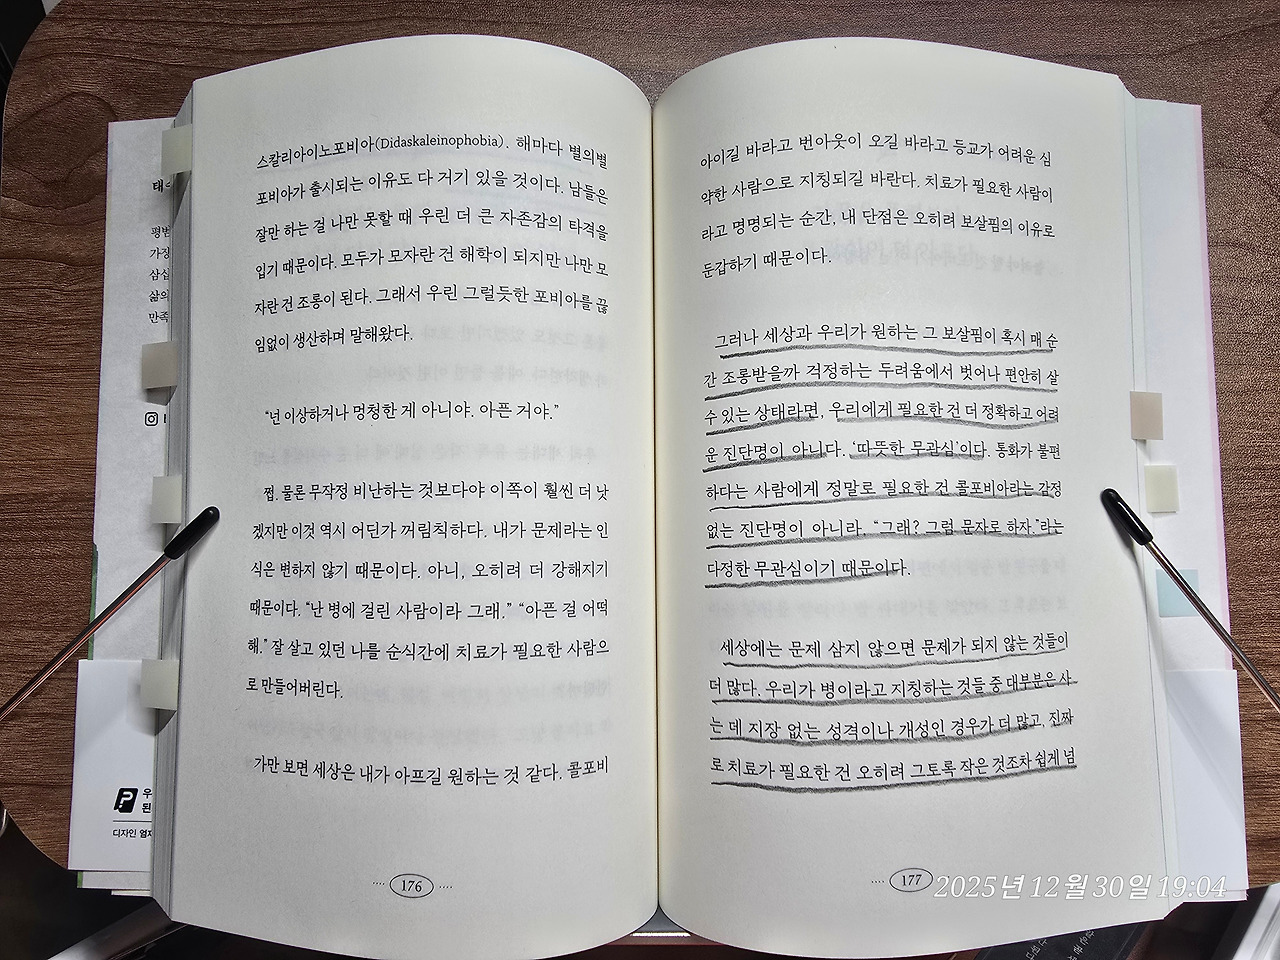 스칼리아이노포비아(Didaskaleinophobia). 해마다 별의별
포비아가 출시되는 이유도 다 거기 있을 것이다. 남들은
잘만 하는 걸 나만 못할 때 우린 더 큰 자존감의 타격을
입기 때문이다. 모두가 모자란 건 해학이 되지만 나만 모
자란 건 조롱이 된다. 그래서 우린 그럴듯한 포비아를 끊
임없이 생산하며 말해왔다.
“넌 이상하거나 멍청한 게 아니야. 아픈 거야.”
쩝. 물론 무작정 비난하는 것보다야 이쪽이 훨씬 더 낫
겠지만 이것 역시 어딘가 꺼림칙하다. 내가 문제라는 인
식은 변하지 않기 때문이다. 아니, 오히려 더 강해지기
때문이다. “난 병에 걸린 사람이라 그래.” “아픈 걸 어떡
해.” 잘 살고 있던 나를 순식간에 치료가 필요한 사람으
로 만들어버린다.
가만 보면 세상은 내가 아프길 원하는 것 같다. 콜포비
176
아이길 바라고 번아웃이 오길 바라고 등교가 어려운 심
약한 사람으로 지칭되길 바란다. 치료가 필요한 사람이
라고 명명되는 순간, 내 단점은 오히려 보살핌의 이유로
둔갑하기 때문이다.
그러나 세상과 우리가 원하는 그 보살핌이 혹시 매 순
간 조롱받을까 걱정하는 두려움에서 벗어나 편안히 살
수 있는 상태라면, 우리에게 필요한 건 더 정확하고 어려
운 진단명이 아니다. ‘따뜻한 무관심’이다. 통화가 불편
하다는 사람에게 정말로 필요한 건 콜포비아라는 감정
없는 진단명이 아니라, “그래? 그럼 문자로 하자.”라는
다정한 무관심이기 때문이다.
세상에는 문제 삼지 않으면 문제가 되지 않는 것들이
더 많다. 우리가 병이라고 지칭하는 것들 중 대부분은 사
는 데 지장 없는 성격이나 개성인 경우가 더 많고, 진짜
로 치료가 필요한 건 오히려 그토록 작은 것조차 쉽게 넘
177
2025년 12월 30일 19:04
평범
가장
삼십
삶의
만족
우
된
디자인 엄지